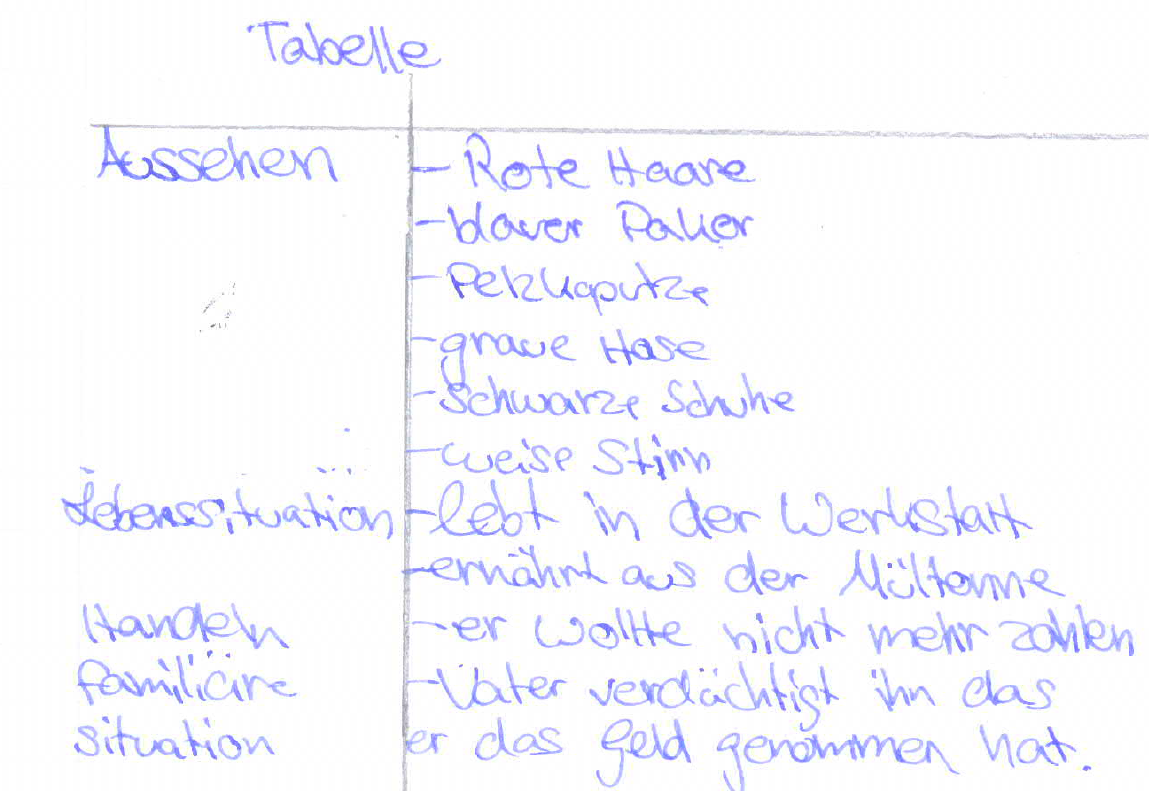 Tabelle
Aussehen - Rote Haare
- blauer Paker
- Pelzkaputze
- graue Hose
- schwarze Schuhe
- weise Stirn
Lebenssituation - lebt in der Werkstatt
- ernährt aus der Mültonne
Handeln - er wollte nicht mehr zahlen
familiäre - Vater verdächtigt ihn das
situation er das Geld genommen hat.